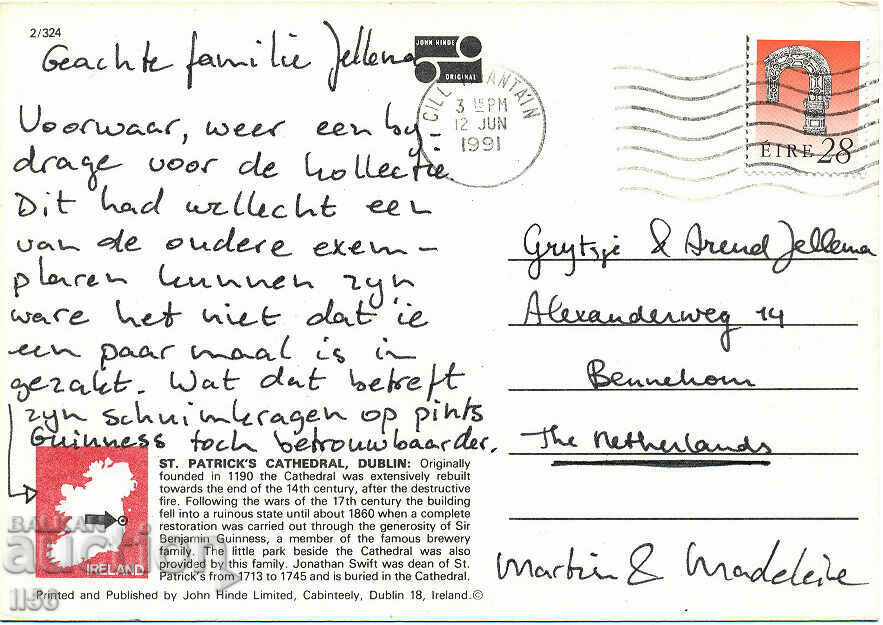 2/324
Geachte familie Jellema
Voorwaar, weer een by-
drage voor de kollectie.
Dit had wellecht een
van de oudere exem-
plaren kunnen zyn
ware het niet dat ie
een paar maal is in
gezakt. Wat dat betreft
zyn schuimkragen op pints
Guinness toch betrouwbaarder.
JOHN HINDE
ORIGINAL
CILL MANTÁIN
3 15PM
12 JUN
1991
ÉIRE 28
Grytsje & Arend Jellema
Alexanderweg 14
Bennekom
The Netherlands
Martin & Madeleine
IRELAND
ST. PATRICK'S CATHEDRAL, DUBLIN: Originally
founded in 1190 the Cathedral was extensively rebuilt
towards the end of the 14th century, after the destructive
fire. Following the wars of the 17th century the building
fell into a ruinous state until about 1860 when a complete
restoration was carried out through the generosity of Sir
Benjamin Guinness, a member of the famous brewery
family. The little park beside the Cathedral was also
provided by this family. Jonathan Swift was dean of St.
Patrick's from 1713 to 1745 and is buried in the Cathedral.
Printed and Published by John Hinde Limited, Cabinteely, Dublin 18, Ireland.©
BALKAN
auction
1156